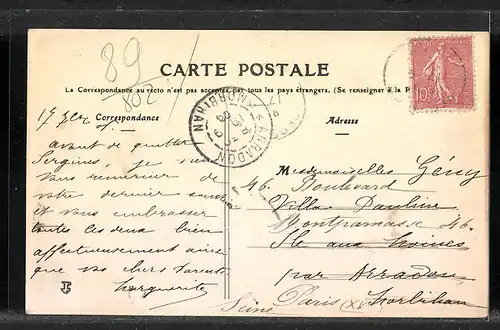 89
802
CARTE POSTALE
La Correspondance au recto n'est pas acceptée par tous les pays étrangers. (Se renseigner à la P
Correspondance
Adresse
17
avant de quitter
Sergines, je
vous remercier de
votre dernier
et vous embrasser
toutes les deux bien
affectueusement ainsi
que vos chers parents
Marguerite
ARRADON
MORBIHAN
10c
Mesdemoiselles Gény
46. Boulevard
Villa Pauline
Montparnasse 46.
Ile aux Moines
par Arradon
Paris Morbihan
Seine